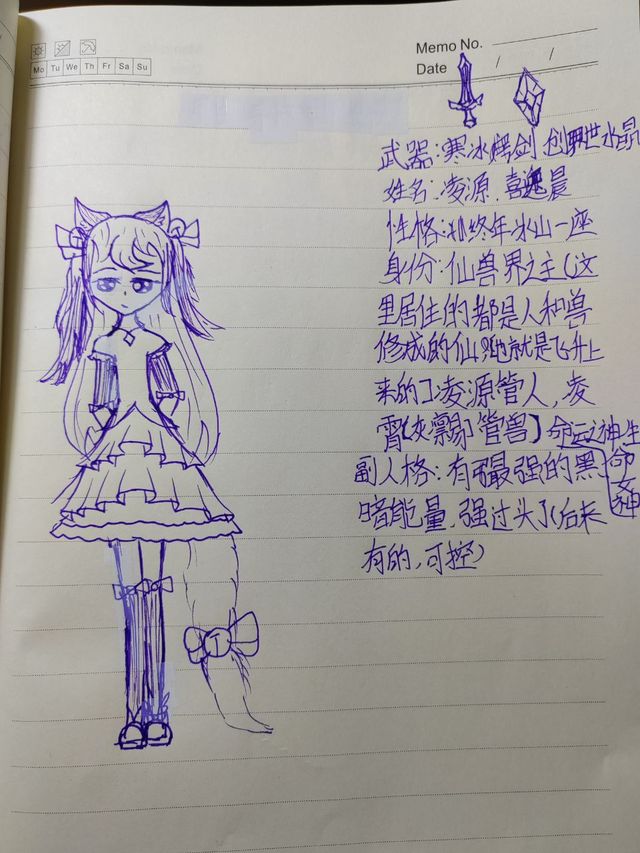 Memo No.
Mo Tu We Th Fr Sa Su
Date / /
武器:寒冰 剑 创 世水晶
姓名:凌源.喜 晨
性格: 终年冰山一座
身份:仙兽界之主(这
里居住的都是人和兽
修成的仙 她就是飞升上
来的)凌源管人,凌
霄( 管兽) 命运神生
命女神
副人格:有 最强的黑
暗能量,强过头了(后来
有的,可控)